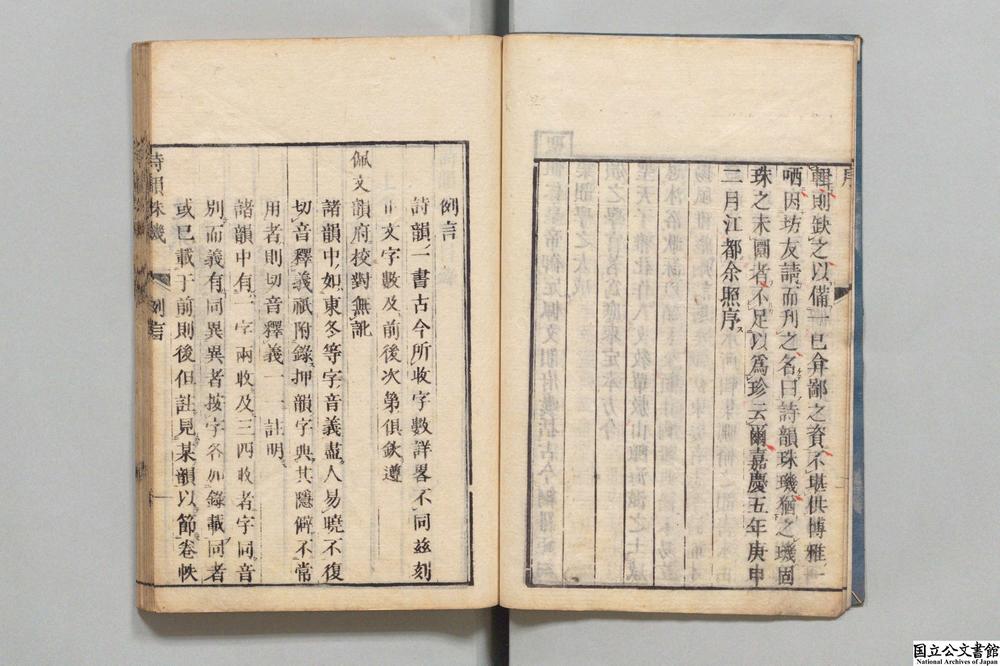 序
輯則缺之以備一己弇鄙之資不堪供博雅一
哂因坊友請而刋之名曰詩韻珠璣猶之璣固
珠之未圓者不足以為珍云爾嘉慶五年庚申
三月江都余照序
例言
詩韻一書古今所收字數詳畧不同茲刻
正文字數及前後次第俱欽遵
佩文韻府校對無訛
諸韻中如東冬等字音義盡人易曉不復
切音釋義祇附錄押韻字典其隱僻不常
用者則切音釋義一一註明
諸韻中有一字兩收及三四收者字同音
別而義有同異異者按字各加錄載同者
或已載于前則後但註見某韻以節卷帙
詩韻珠璣
例言
一
国立公文書館
National Archives of Japan